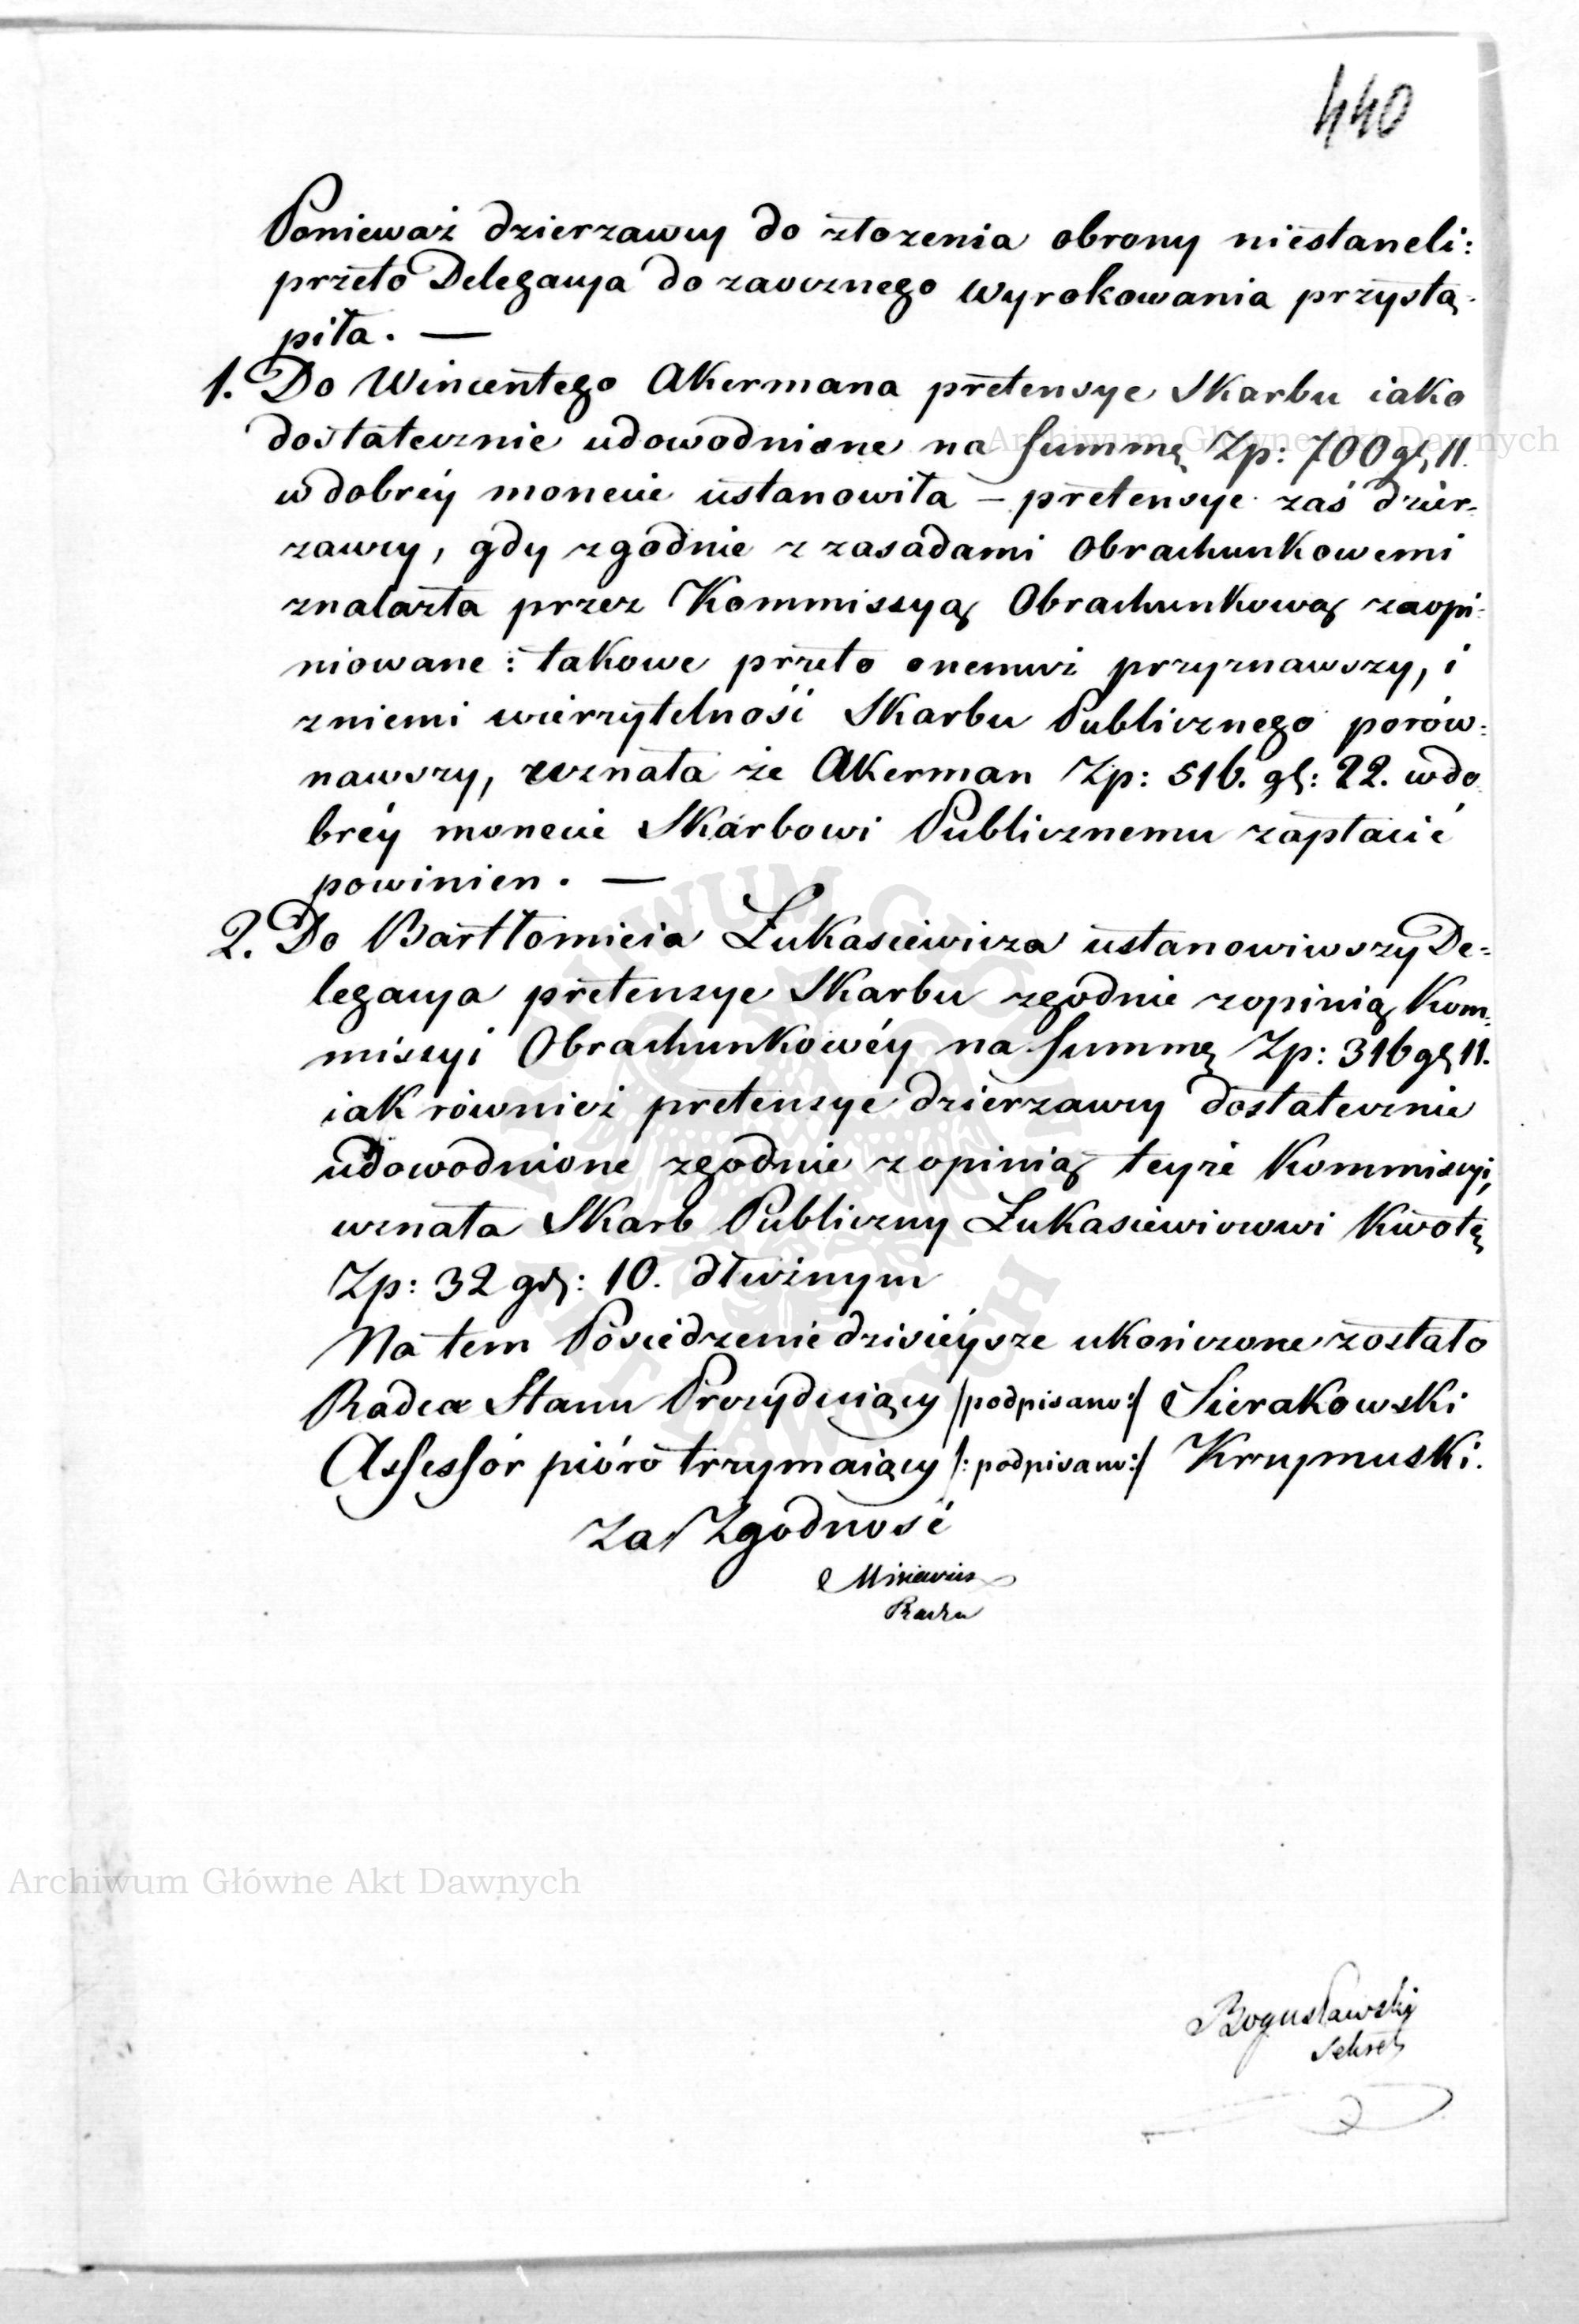 440
Ponieważ dzierzawcy do złozenia obrony niestaneli:
przeto Delegacya do zaocznego wyrokowania przystą-
piła. —
1. Do Wincentego Akermana pretensye Skarbu iako
dostatecznie udowodnione na Summę Zp: 700 gł, 11.
w dobréy monecie ustanowiła – pretensye zaś dzier-
zawcy, gdy zgodnie z zasadami Obrachunkowemi
znalazła przez Kommissyą Obrachunkową zaopi-
niowane: takowe przeto onemuż przyznawszy, i
zniemi wierzytelność Skarbu Publicznego porów-
nawszy, uznała że Akerman Zp: 516. gł: 22. wdo
bréy monecie Skarbowi Publicznemu zapłacić
powinien. —
2. Do Bartłomieia Łukasiewicza ustanowiwszy De-
legacya pretensye Skarbu zgodnie zopinią Kom-
missyi Obrachunkowéy na Summę Zp: 316 gł, 11.
iak również pretensye dzierzawcy dostatecznie
udowodnione zgodnie zopinią teyże Kommissyi,
uznała Skarb Publiczny Łukasiewiczowi Kwotę
Zp: 32 gł: 10. dłużnym
Na tem Posiedzenie dzisieysze ukończone zostało
Radca Stanu Prezyduiący /podpisano:/ Sierakowski
Assessór pióro trzymaiący /:podpisano:/ Krzymuski.
Za Zgodność
Radca
Bogusławski
Sekret
Archiwum Główne Akt Dawnych
Archiwum Główne Akt Dawnych
ARCHIWUM GŁÓWNE AKT DAWNYCH